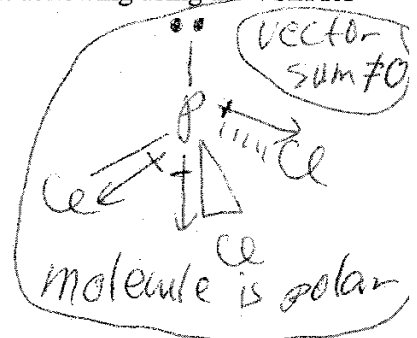 vector
sum≠0
P
Cl
Cl
Cl
molecule is polar